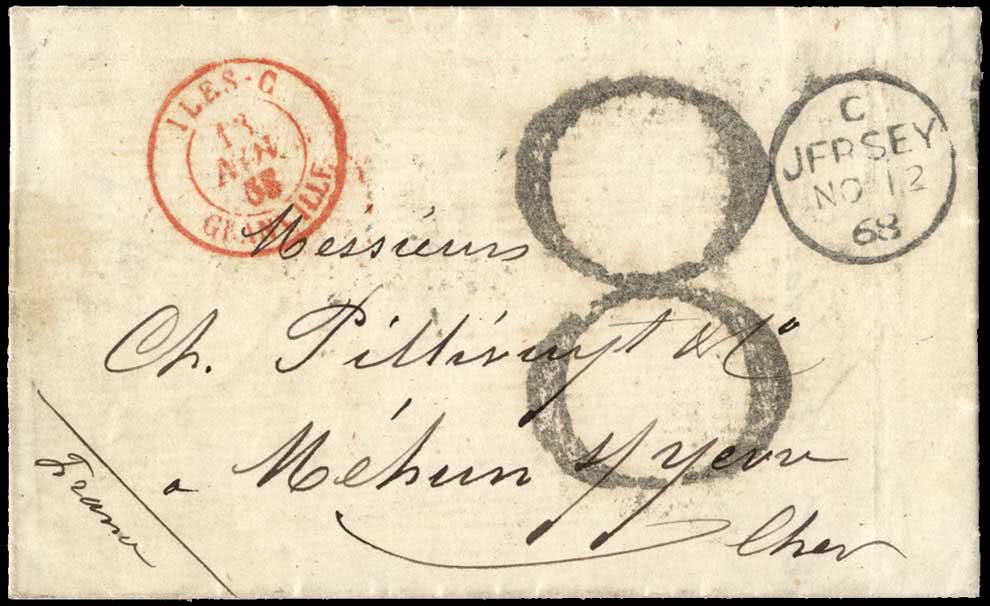 ILES-C.
13
NOV.
68
GRANVILLE
8
C
JERSEY
NO 12
68
Messieurs
Ch. Pillivuyt & Co
a Méhun s/ Yevre
Cher
France